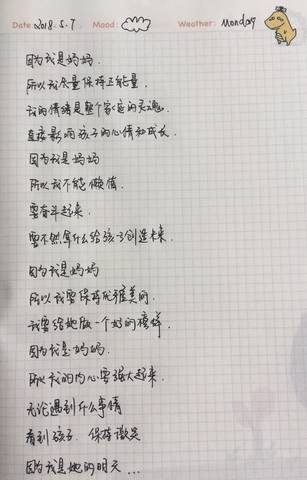 Date: 2018.5.7 Mood: Weather: Monday
因为我是妈妈
所以我尽量保持正能量.
我的情绪是整个家庭的灵魂.
直接影响孩子的心情和成长.
因为我是妈妈
所以我不能懒惰.
要奋斗起来.
要不然拿什么给孩子创造未来.
因为我是妈妈
所以我要保持优雅美丽.
我要给她做一个好的榜样.
因为我是妈妈.
所以我的内心要强大起来.
无论遇到什么事情
看到孩子 保持微笑
因为我是她的明天...